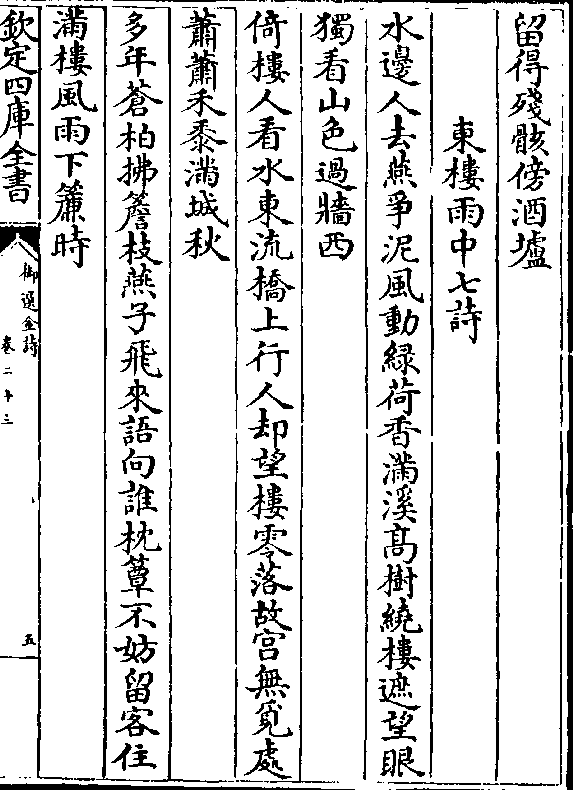 留得殘骸傍酒壚
東樓雨中七詩
水邊人去燕爭泥風動緑荷香滿溪髙樹繞樓遮望眼
獨看山色過牆西
倚樓人看水東流橋上行人却望樓零落故宫無覓處
蕭蕭禾黍滿城秋
多年蒼柏拂簷枝燕子飛來語向誰枕簟不妨留客住
滿樓風雨下簾時
欽定四庫全書
御選金詩
卷二十三
五